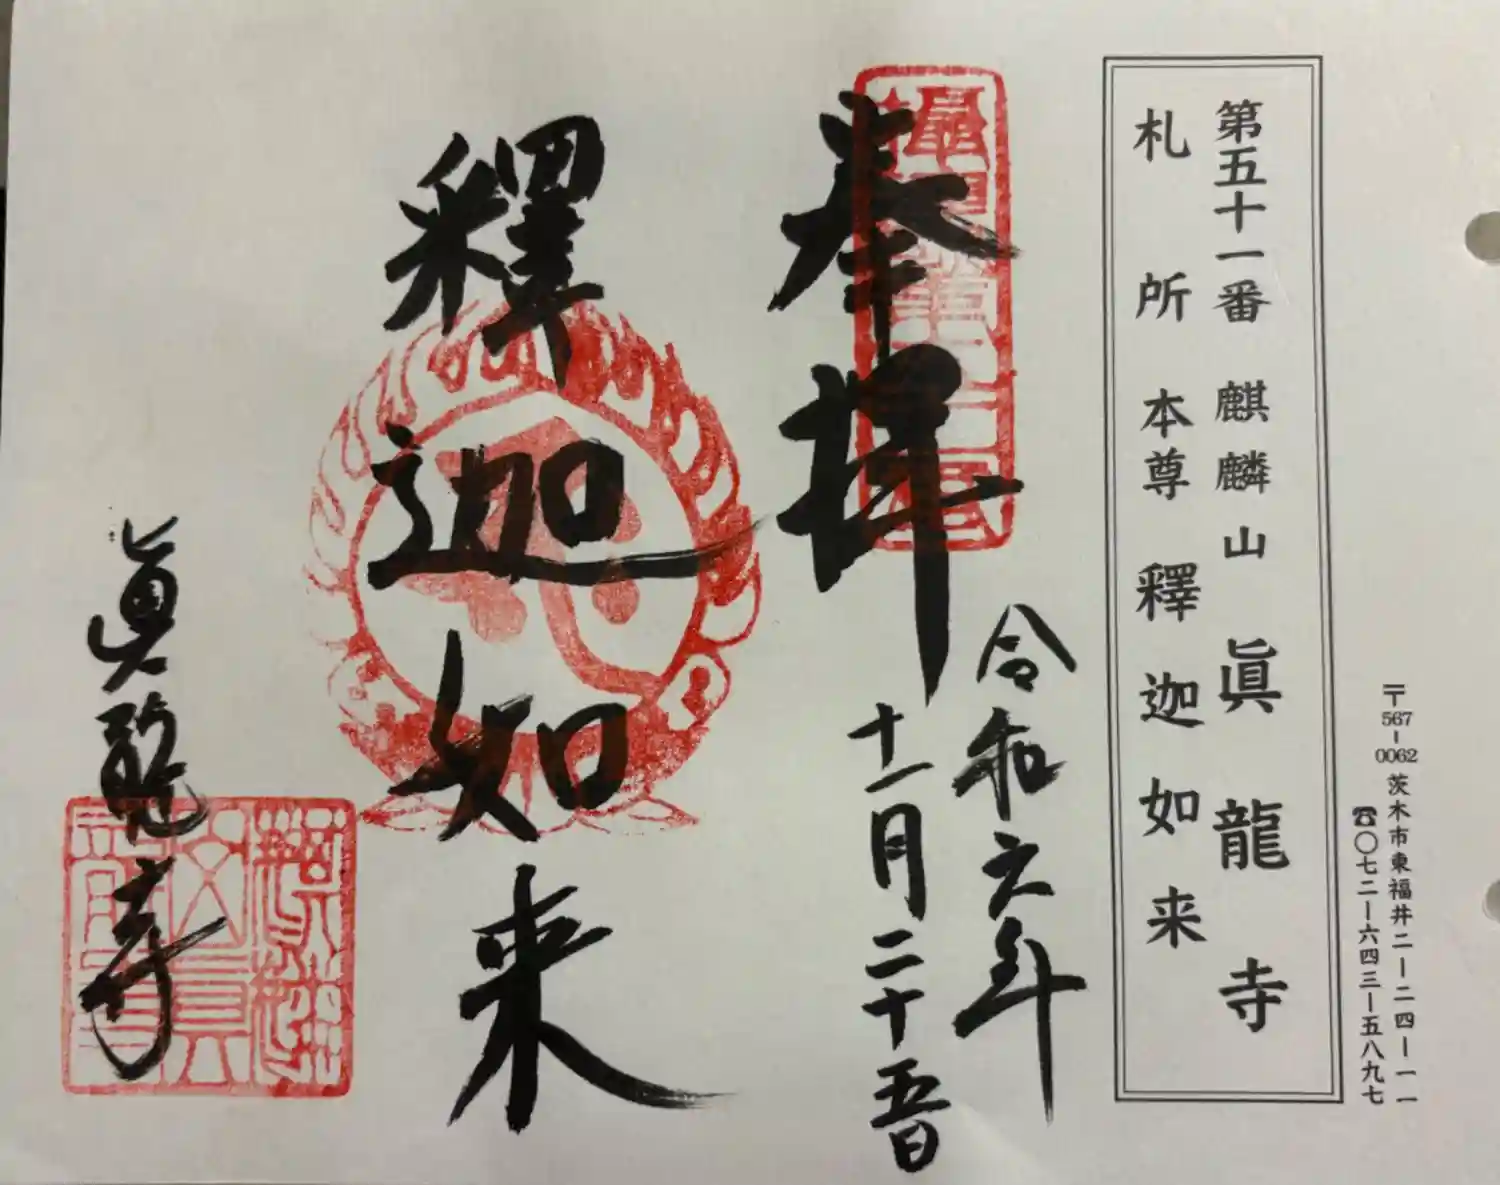 〒567-0062 茨木市東福井二ー二四ー一一
☎〇七二ー六四三ー五八九七
第五十一番 麒麟山 眞龍寺
札所 本尊 釋迦如来
奉拝
令和六年
十一月二十五日
釋迦如来
眞龍寺